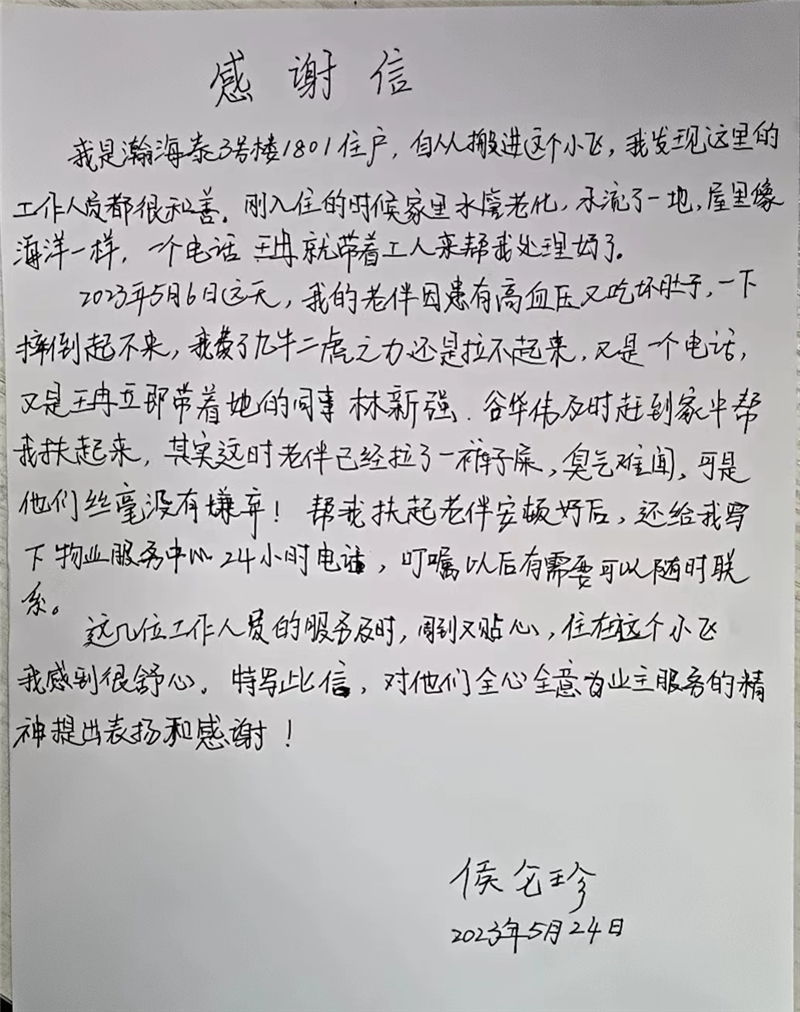 感谢信
我是瀚海泰3号楼1801住户,自从搬进这个小飞,我发现这里的
工作人员都很和善。刚入住的时候家里水管老化,水流了一地,屋里像
海洋一样,一个电话 王冉就带着工人来帮我处理好了。
2023年5月6日这天,我的老伴因患有高血压又吃坏肚子,一下
摔倒起不来,我费了九牛二虎之力还是拉不起来,又是一个电话,
又是王冉立即带着她的同事林新强、谷华伟及时赶到家中帮
我扶起来,其实这时老伴已经拉了一裤子屎,臭气难闻,可是
他们丝毫没有嫌弃!帮我扶起老伴安顿好后,还给我写
下物业服务中心24小时电话,叮嘱以后有需要可以随时联
系。
这几位工作人员的服务及时,周到又贴心,住在这个小飞
我感到很舒心。特写此信,对他们全心全意为业主服务的精
神提出表扬和感谢!
侯 珍
2023年5月24日